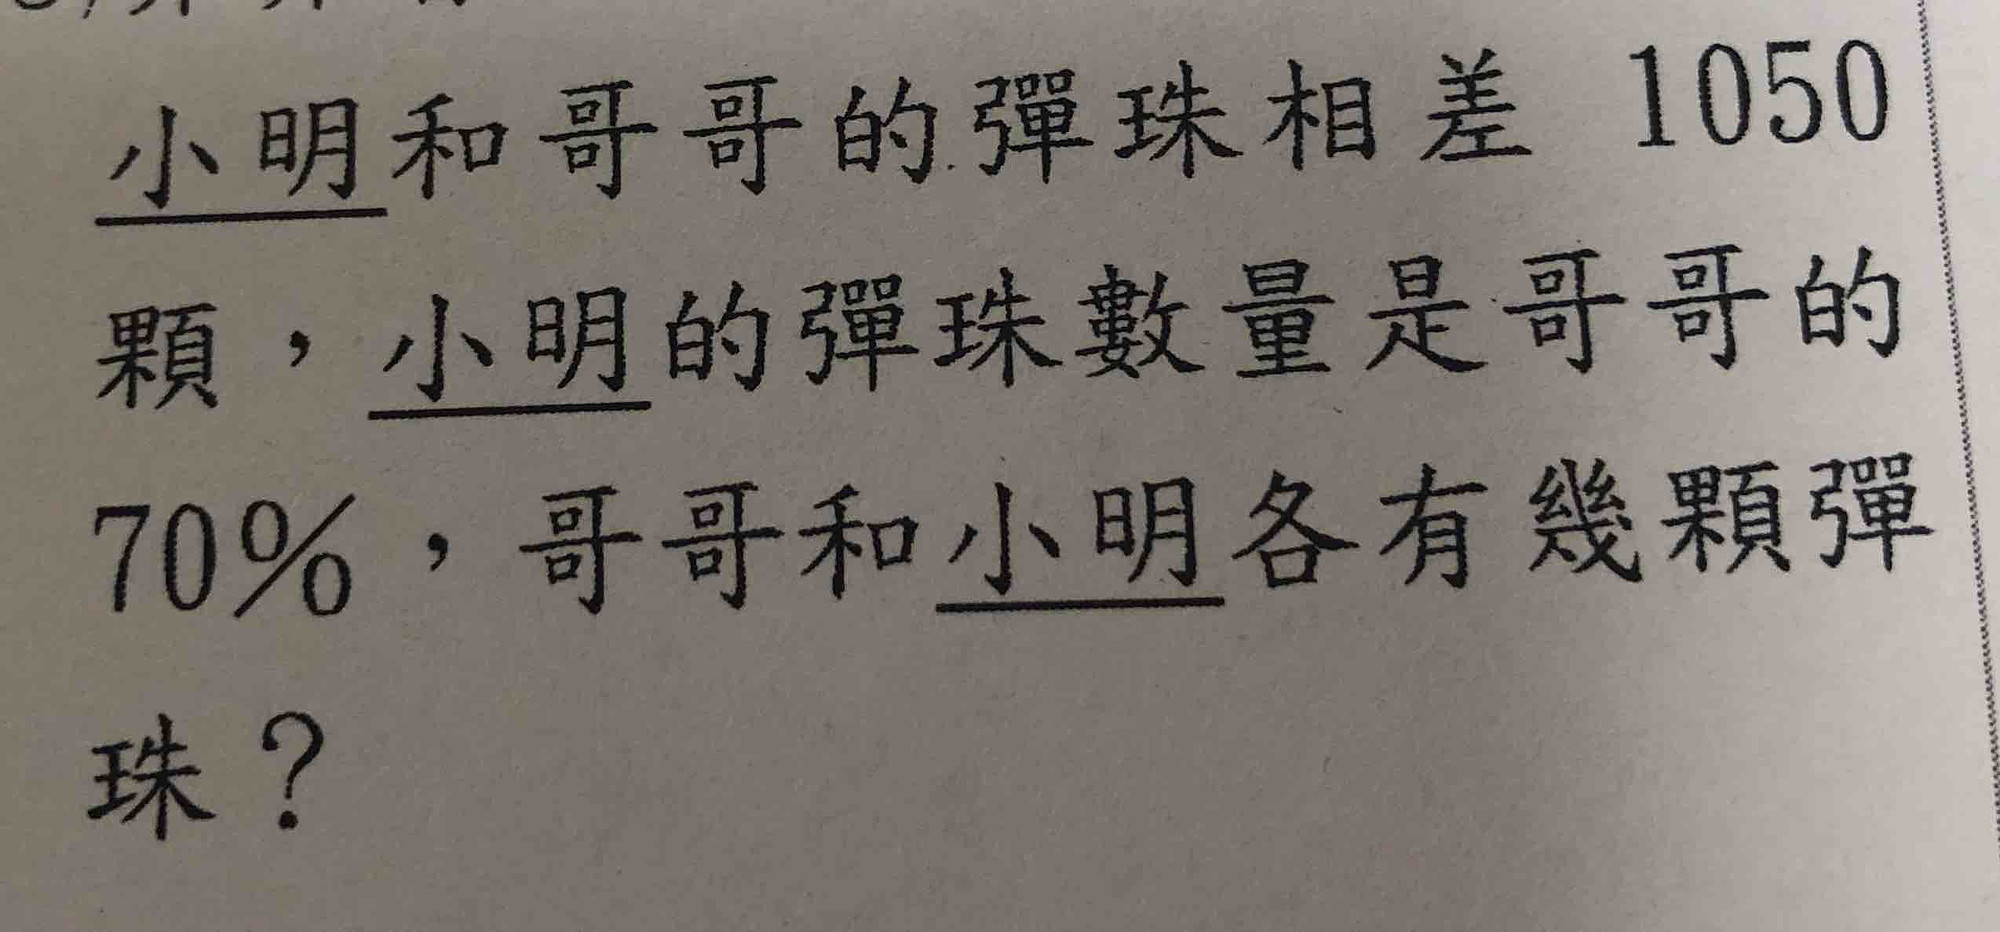 小明和哥哥的彈珠相差 1050
顆，小明的彈珠數量是哥哥的
70%，哥哥和小明各有幾顆彈
珠？